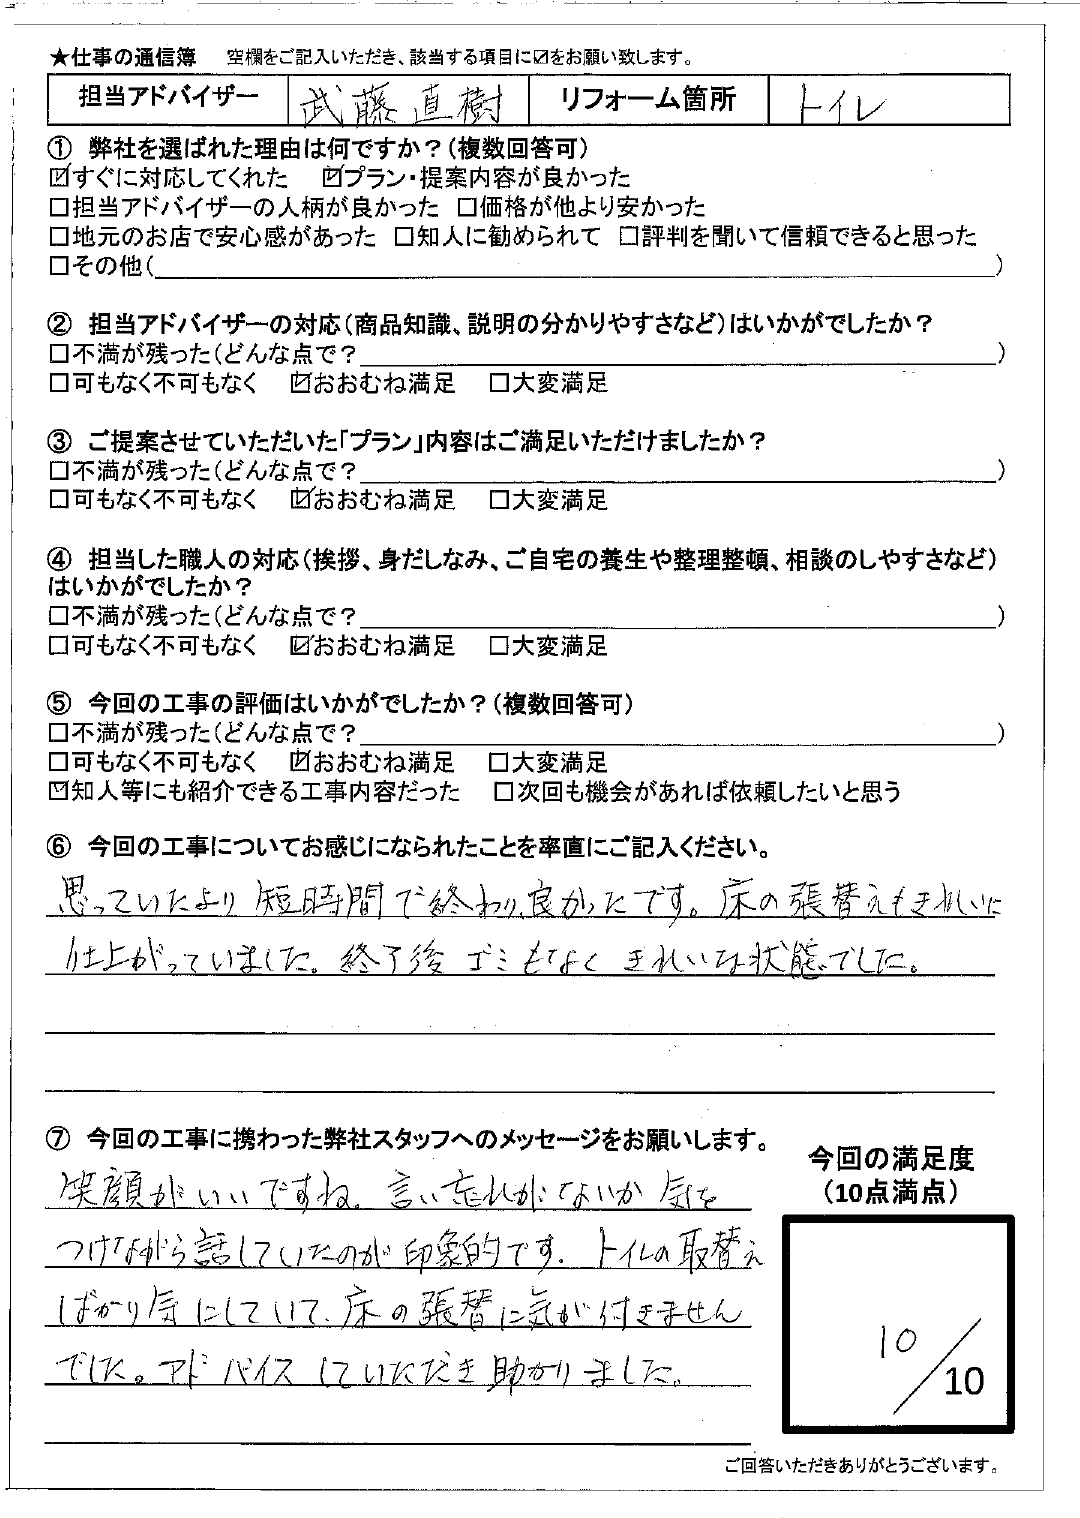 ★仕事の通信簿　空欄をご記入いただき、該当する項目に☑をお願い致します。
担当アドバイザー　武藤直樹　リフォーム箇所　トイレ
① 弊社を選ばれた理由は何ですか？（複数回答可）
☑すぐに対応してくれた　☑プラン・提案内容が良かった
□担当アドバイザーの人柄が良かった　□価格が他より安かった
□地元のお店で安心感があった　□知人に勧められて　□評判を聞いて信頼できると思った
□その他（　　　）
② 担当アドバイザーの対応（商品知識、説明の分かりやすさなど）はいかがでしたか？
□不満が残った（どんな点で？　　　）
□可もなく不可もなく　☑おおむね満足　□大変満足
③ ご提案させていただいた「プラン」内容はご満足いただけましたか？
□不満が残った（どんな点で？　　　）
□可もなく不可もなく　☑おおむね満足　□大変満足
④ 担当した職人の対応（挨拶、身だしなみ、ご自宅の養生や整理整頓、相談のしやすさなど）
はいかがでしたか？
□不満が残った（どんな点で？　　　）
□可もなく不可もなく　☑おおむね満足　□大変満足
⑤ 今回の工事の評価はいかがでしたか？（複数回答可）
□不満が残った（どんな点で？　　　）
□可もなく不可もなく　☑おおむね満足　□大変満足
☑知人等にも紹介できる工事内容だった　□次回も機会があれば依頼したいと思う
⑥ 今回の工事についてお感じになられたことを率直にご記入ください。
思っていたより短時間で終わり、良かったです。床の張替えもきれいに
仕上がっていました。終了後ゴミもなくきれいな状態でした。
⑦ 今回の工事に携わった弊社スタッフへのメッセージをお願いします。
笑顔がいいですね。言い忘れがないか気を
つけながら話していたのが印象的です。トイレの取替え
ばかり気にしていて、床の張替に気が付きません
でした。アドバイスしていただき助かりました。
今回の満足度
（10点満点）
10／10
ご回答いただきありがとうございます。